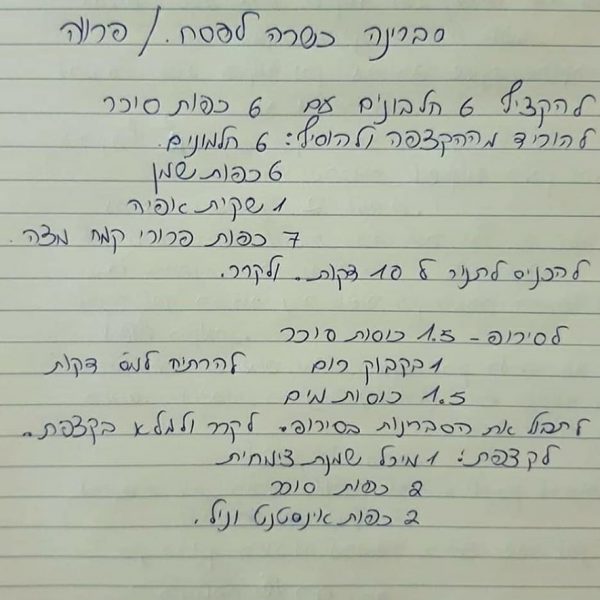 סברינה כשרה לפסח. / פרווה
להקציף 6 חלבונים עם 6 כפות סוכר
להוריד מההקצפה ולהוסיף: 6 חלמונים.
6 כפות שמן
1 שקית אופיה
7 כפות פרורי קמח מצה.
להכניס לתנור ל 10 דקות. ולקרר.
לסירופ - 1.5 כוסות סוכר
1 בקבוק רום להרתיח דקות
1.5 כוסות מים
לטבול את הסברינות בסירופ. לקרר ולמלא בקצפת.
לקצפת: 1 מיכל שמנת צימחית
2 כפות סוכר
2 כפות אינסטנט וניל.